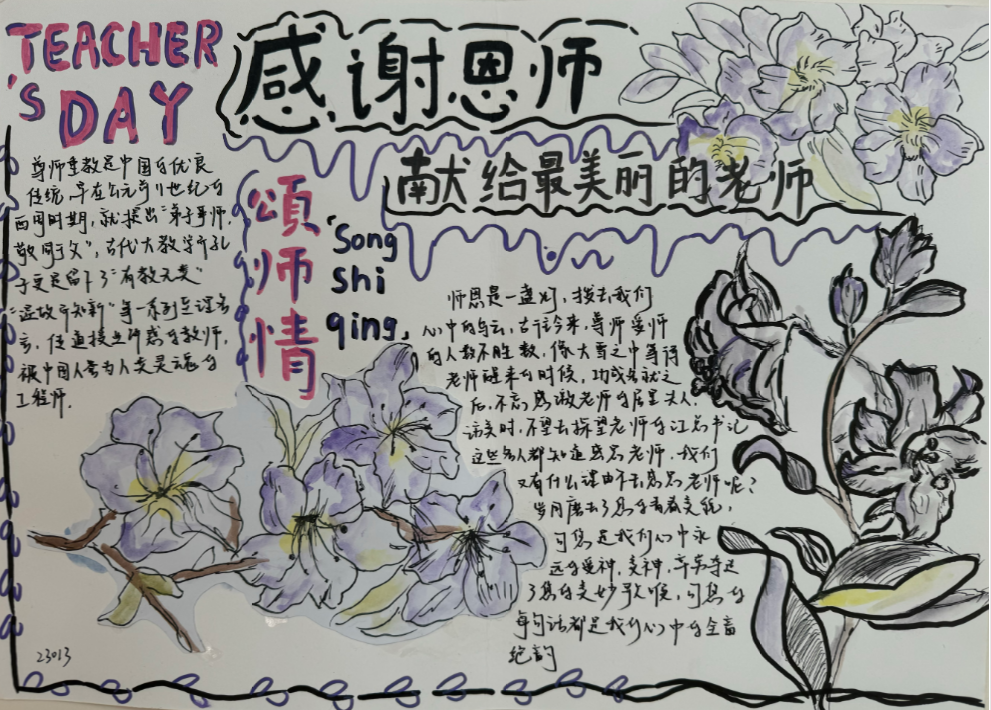 TEACHER
'S
DAY
感谢恩师
献给最美丽的老师
尊师重教是中国的优良
传统,早在公元前11世纪的
西周时期,就提出"弟子事师,
敬同于父",古代大教学家孔
子更是留下了"有教无类"
"温故而知新"等一系列至理名
言,传道授业解惑的教师,
被中国人誉为人类灵魂的
工程师.
頌师情
'Song
shi
qing,
师恩是一盏灯,拨去我们
心中的乌云,古往今来,尊师爱师
的人数不胜数,像大雪之中等待
老师醒来的时候,功成名就之
后,不忘感激老师的居里夫人,
访美时,不望去探望老师的江总书记
这些名人都知道感恩老师,我们
又有什么理由不去感恩老师呢?
岁月磨去了您的青春美貌,
可您是我们心中永
远的爱神,美神,辛劳夺走
了您的美妙歌喉,可您的
每句话都是我们心中的全音
绝韵
23013